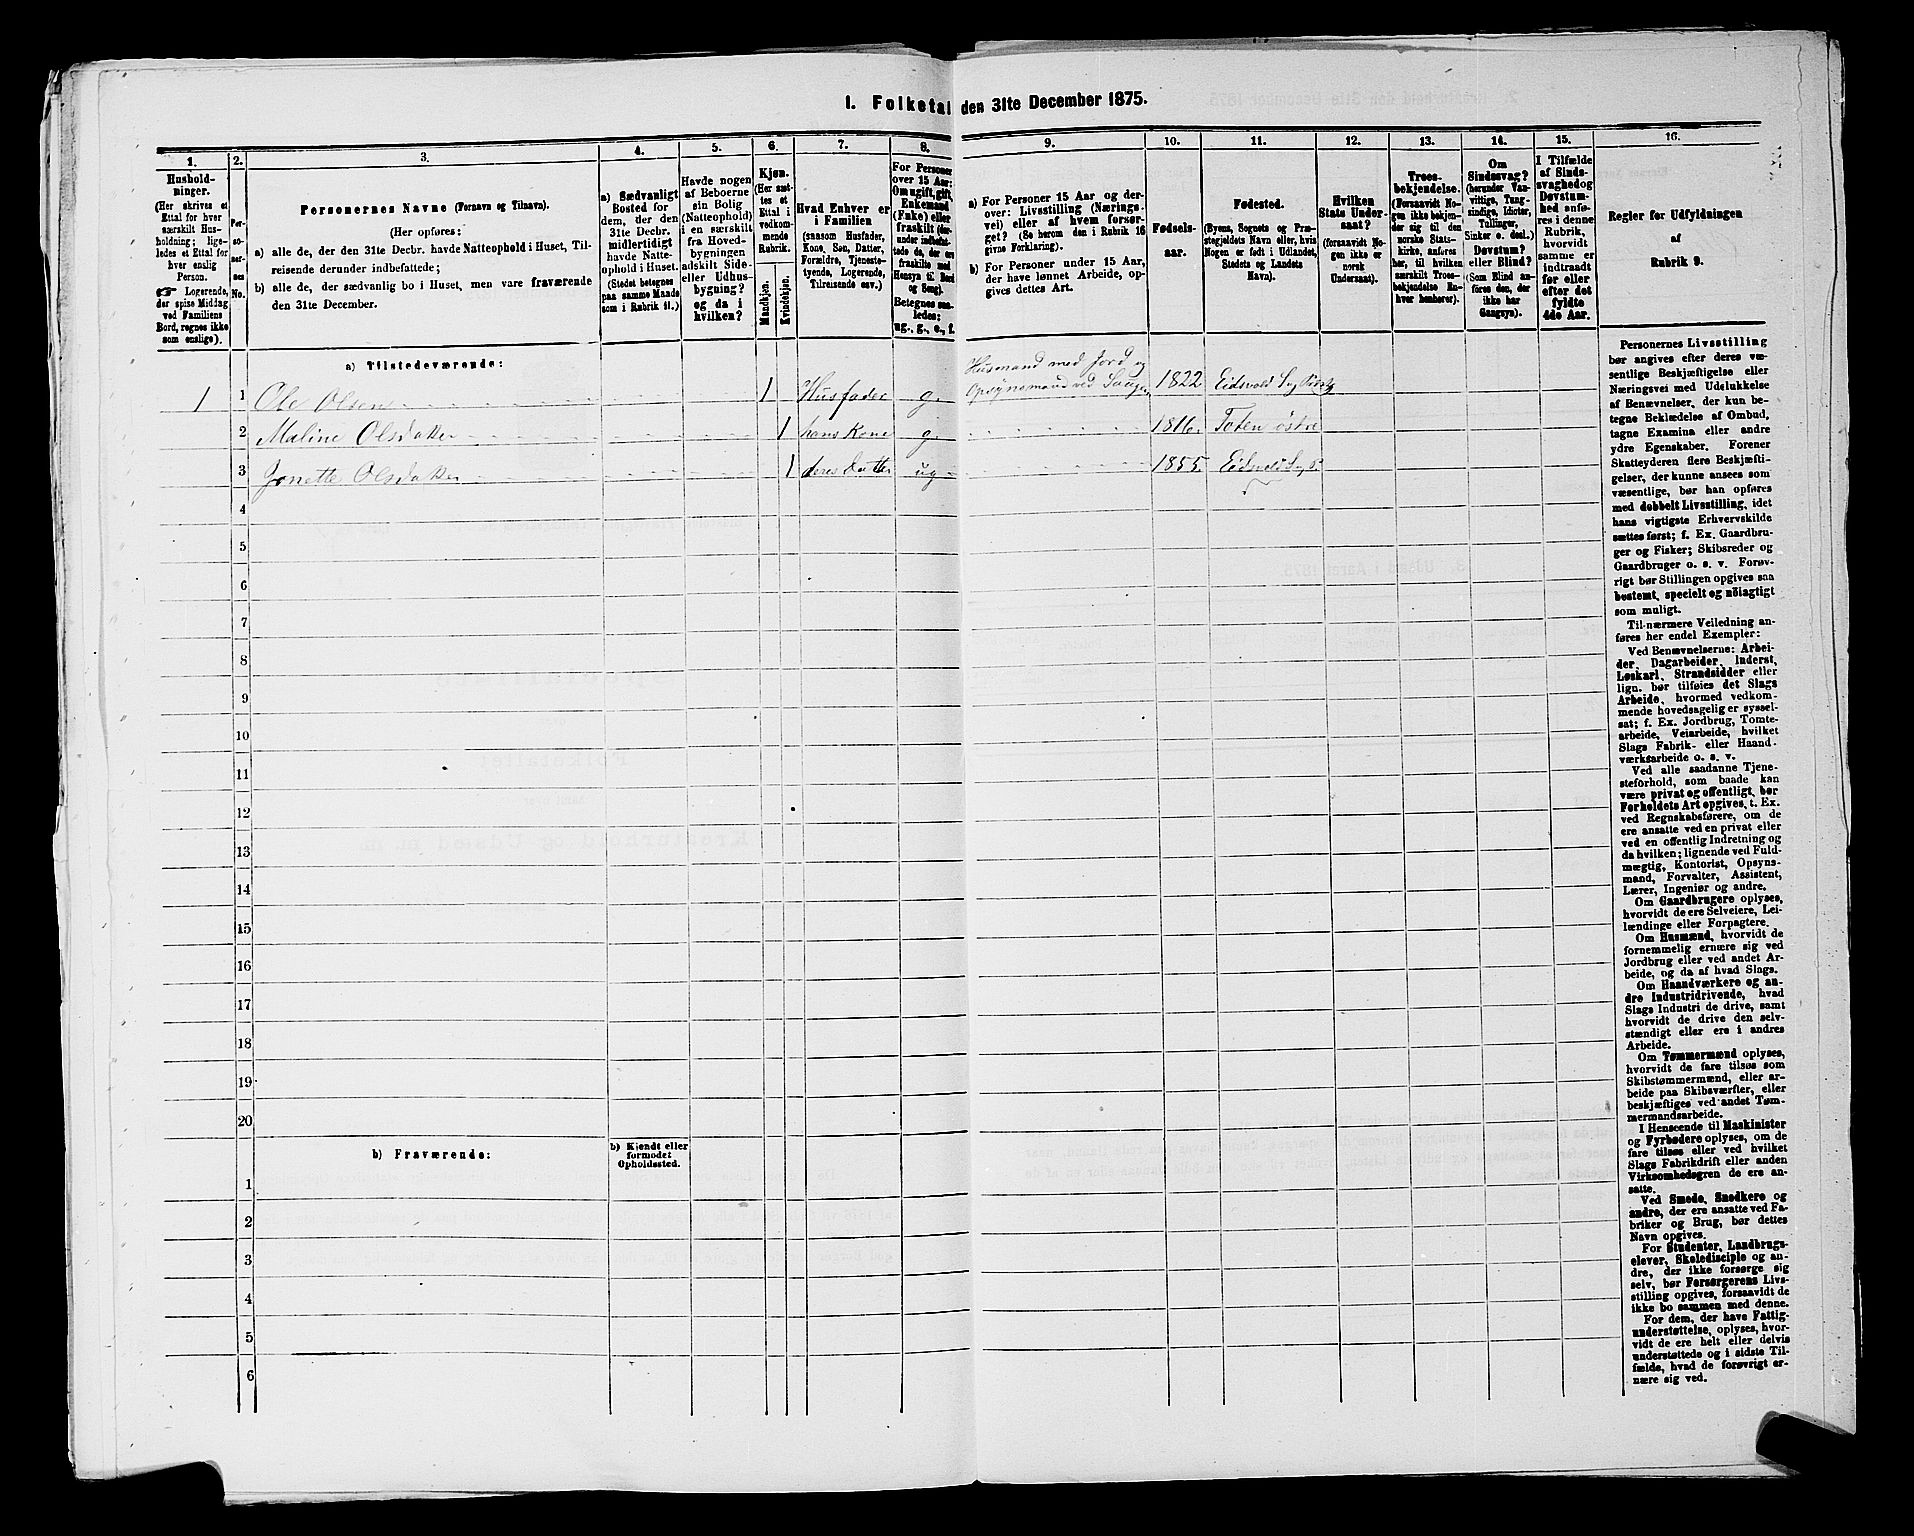 I. Folketal den 31te December 1875.
1.
2.
3.
4.
5.
6.
7.
8.
9.
10.
11.
12.
13.
14.
15.
16.
Hushold-
ninger.
(Her skrives et
Ettal for hver
særskilt Hus-
holdning; lige-
ledes et Ettal for
hver enslig
Person.
Logerende,
der spise Middag
ved Familiens
Bord, regnes ikke
som enslige).
Per-
so-
ner-
nes
No.
Personernes Navne (Fornavn og Tilnavn).
(Her opføres:
a) alle de, der den 31te Decbr. havde Natteophold i Huset, Til-
reisende derunder indbefattede;
b) alle de, der sædvanlig bo i Huset, men vare fraværende
den 31te December.
a) Sædvanligt
Bosted for
dem, der den
31te Decbr.
midlertidigt
havde Natte-
ophold i Huset.
(Stedet betegnes
paa samme Maade
som i Rubrik 11.)
Havde nogen
af Beboerne
sin Bolig
(Natteophold)
i en særskilt
fra Hoved-
bygningen
adskilt Side-
eller Udhus-
bygning?
og da i
hvilken?
Kjøn.
(Her sæt-
tes et
Ettal i
vedkom-
mende
Rubrik.
Mandkjøn.
Kvindekjøn.
Hvad Enhver er
i Familien
(saasom Husfader,
Kone, Søn, Datter,
Forældre, Tjeneste-
tyende, Logerende,
Tilreisende osv.)
For Personer
over 15 Aar:
Om ugift, gift,
Enkemand
(Enke) eller
fraskilt (der-
under indbefat-
tede de, der ere
fraskilte med
Hensyn til Bord
og Seng).
Betegnes saa-
ledes:
ug., g., e., f.
a) For Personer 15 Aar og der-
over: Livsstilling (Nærings-
vei) eller af hvem forsør-
get? (Se herom den i Rubrik 16
givne Forklaring).
b) For Personer under 15 Aar,
der have lønnet Arbeide, op-
gives dettes Art.
Fødsels-
aar.
Fødested.
(Byens, Sognets og Præ-
stegjeldets Navn eller, hvis
Nogen er født i Udlandet,
Stedets og Landets
Navn).
Hvilken
Stats Under-
saat?
(forsaavidt No-
gen ikke er
norsk
Undersaat).
Troes-
bekjendelse.
(Forsaavidt No-
gen ikke bekjen-
der sig til den
norske Stats-
kirke, anføres
her, til hvilken
særskilt Troes-
bekjendelse En-
hver henhører).
Om
Sindssvag?
(herunder Van-
vittige, Tung-
sindige, Idioter,
Tullinger,
Sinker o. desl.)
Døvstum?
eller Blind?
(Som Blind an-
føres den, der
ikke har
Gangsyn).
I Tilfælde
af Sinds-
svaghed og
Døvstum-
hed anfø-
res i denne
Rubrik,
hvorvidt
samme er
indtraadt
før eller
efter det
fyldte
4de Aar.
Regler for Udfyldningen
af
Rubrik 9.
a) Tilstedeværende:
1 1 Ole Olsen 1 Husfader g. Husmand med Jord og
Opsynsmand ved Saugen 1822 Eidsvold
2 Maline Olsdatter 1 hans Kone g. 1816. Toten østre
3 Jonette Olsdatter 1 deres Datter ug 1855.
4
5
6
7
8
9
10
11
12
13
14
15
16
17
18
19
20
b) Fraværende:
b) Kjendt eller
formodet
Opholdssted.
1
2
3
4
5
6
Personernes Livsstilling
bør angives efter deres væ-
sentlige Beskjæftigelse eller
Næringsvei med Udelukkelse
af Benævnelser, der kun be-
tegne Beklædelse af Ombud,
tagne Examina eller andre
ydre Egenskaber. Forener
Skatteyderen flere Beskjæfti-
gelser, der kunne ansees som
væsentlige, bør han opføres
med dobbelt Livsstilling, idet
hans vigtigste Erhvervskilde
sættes først; f. Ex. Gaardbru-
ger og Fisker; Skibsreder og
Gaardbruger o. s. v. Forøv-
rigt bør Stillingen opgives saa
bestemt, specielt og nøiagtigt
som muligt.
Til nærmere Veiledning an-
føres her endel Exempler:
Ved Benævnelserne: Arbei-
der, Dagarbeider, Inderst,
Løskarl, Strandsidder eller
lign. bør tilføies det Slags
Arbeide, hvormed vedkom-
mende hovedsagelig er syssel-
sat; f. Ex. Jordbrug, Tomte-
arbeide, Veiarbeide, hvilket
Slags Fabrik- eller Haand-
værksarbeide o. s. v.
Ved alle saadanne Tjene-
steforhold, som baade kan
være privat og offentligt, bør
Forholdets Art opgives, t. Ex.
ved Regnskabsførere, om de
ere ansatte ved en privat eller
ved en offentlig Indretning og
da hvilken; lignende ved Fuld-
mægtig, Kontorist, Opsyns-
mand, Forvalter, Assistent,
Lærer, Ingeniør og andre.
Om Gaardbrugere oplyses,
hvorvidt de ere Selveiere, Lei-
lændinge eller Forpagtere.
Om Husmænd, hvorvidt de
fornemmelig ernære sig ved
Jordbrug eller ved andet Ar-
beide, og da af hvad Slags.
Om Haandværkere og an-
dre Industridrivende, hvad
Slags Industri de drive, samt
hvorvidt de drive den selv-
stændigt eller ere i andres
Arbeide.
Om Tømmermænd oplyses,
hvorvidt de fare tilsøs som
Skibstømmermænd, eller ar-
beide paa Skibsværfter, eller
beskjæftiges ved andet Tøm-
mermandsarbeide.
I Henseende til Maskinister
og Fyrbødere oplyses, om de
fare tilsøs eller ved hvilket
Slags Fabrikdrift eller anden
Virksomhedsgren de ere an-
satte.
Ved Smede, Snedkere og
andre, der ere ansatte ved Fa-
briker og Brug, bør dettes
Navn opgives.
For Studenter, Landbrugs-
elever, Skoledisciple og an-
dre, der ikke forsørge sig
selv, bør Forsørgerens Livs-
stilling opgives, forsaavidt de
ikke bo sammen med denne.
For dem, der have Fattig-
understøttelse, oplyses, hvor-
vidt de ere helt eller delvis
understøttede og i sidste Til-
fælde, hvad de forøvrigt er-
nære sig ved.